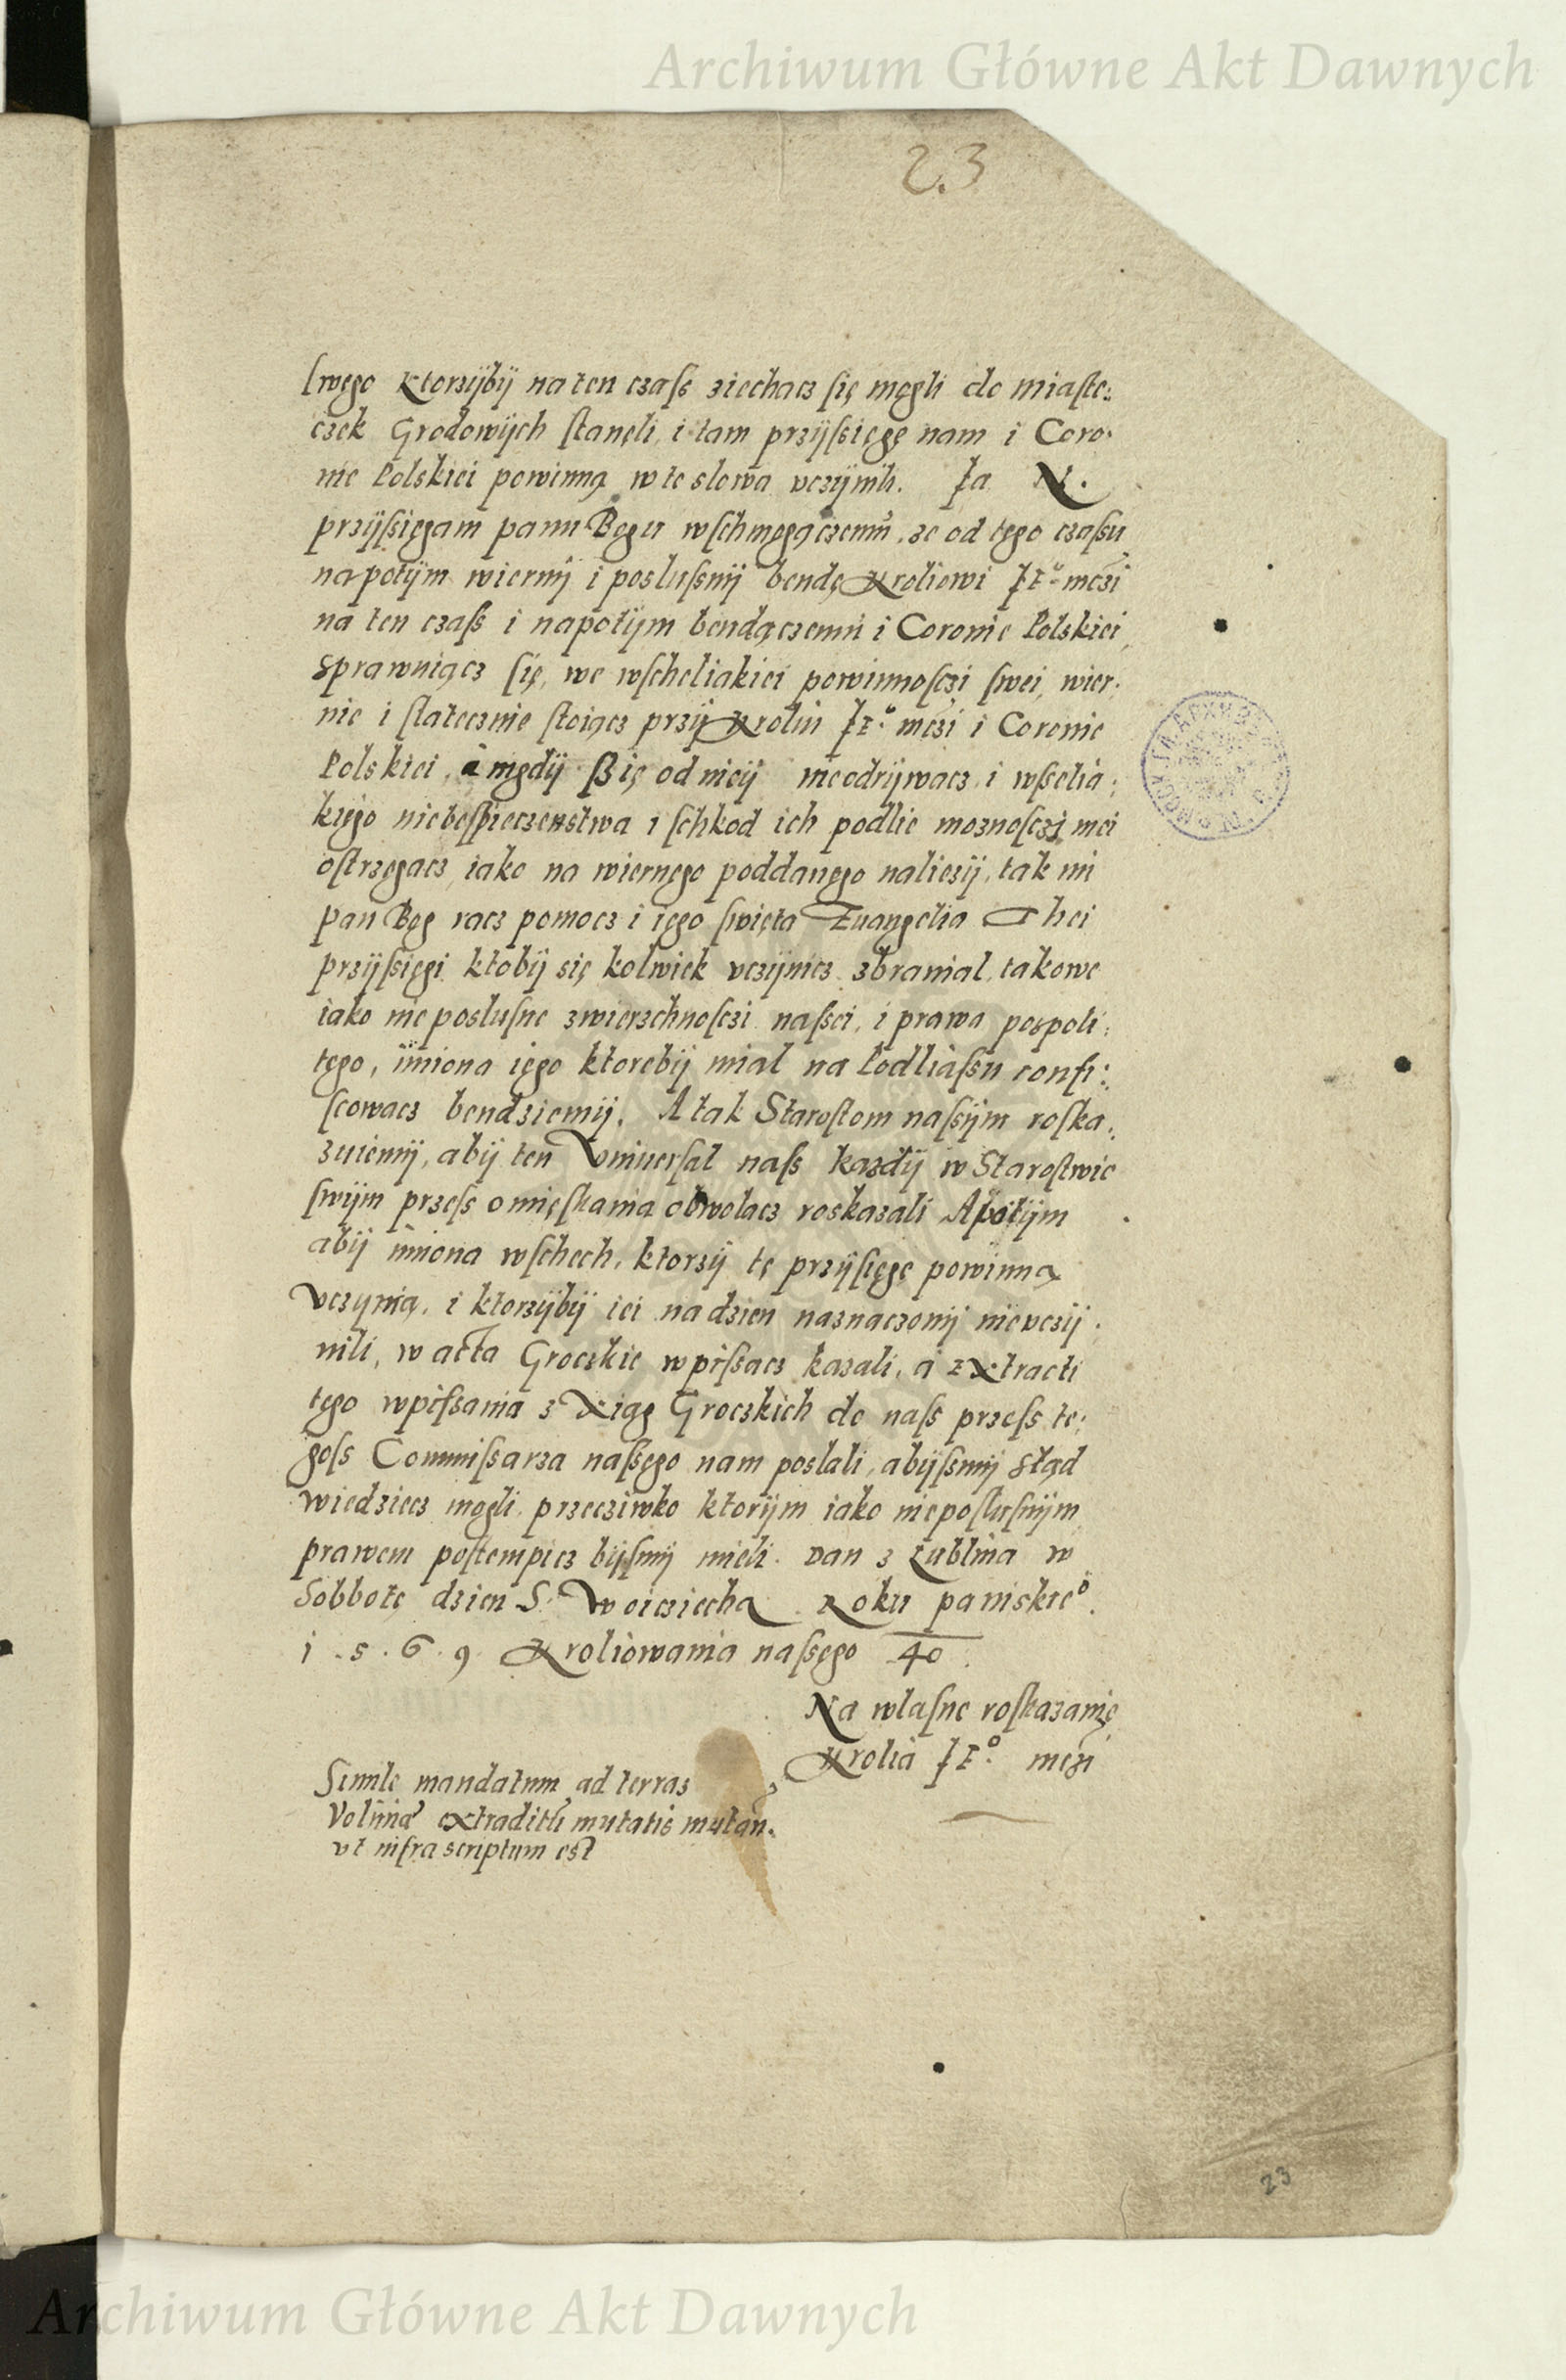 Archiwum Główne Akt Dawnych
23
swego ktorzÿbÿ na ten czasſ ziechacz ſię mogli do miaſte:
czek Grodowÿch ſtanęli, i tam przÿſsięgę nam i Coro:
nie Polskiei powinną w te slowa vczÿnili. Ja N.
przÿſsięgam panu Bogu wſchmogączemu, ze od tego czaſsu
napotÿm wiernÿ i posluſsnÿ bendę Kroliowi JEº mczi
na ten czaſs i napotÿm bendączemu i Coronie Polskiei,
sprawuiącz ſię, we wſcheliakiei powinnoſczi ſwei, wier:
nie i ſtatecznie ſtoiącz przÿ Kroliu JEº mczi i Coronie
Polskiei, a nigdÿ ßię od nieÿ nieodrÿwacz, i wſselia:
kiego niebeſpieczenstwa i ſchkod ich podlie moznoſczi mei
oſtrzegacz, iako na wiernego poddanego naliezÿ, tak mi
pan Bog racz pomocz i iego ſwięta Euangelia Thei
przÿſsięgi ktobÿ się kolwiek vczÿnicz zbranial, takowe
iako niepoſluſne zwierzchnoſczi naſsei, i prawa poſpoli:
tego, imiona iego ktorebÿ mial na Podliaſsu confi:
ſcowacz bendziemÿ. A tak Staroſtom naſsÿm roſka:
zuiemÿ, abÿ ten Vniuerſal naſs kazdÿ w Staroſtwie
ſwÿm przeſs omięſkania obwolacz roskazali A potÿm
abÿ imiona wſchech, ktorzÿ tę przÿſięgę powinną
vczynią, i ktorzÿbÿ iei na dzien naznaczonÿ nievczÿ:
nili, w acta Groczkie wpiſsacz kazali, a Extracti
tego wpiſsania z Xiąg Groczkich do naſs przeſs te:
goſs Commiſsarza naſsego nam poslali, abÿſsmÿ stąd
wiedziecz mogli, przecziwko ktorÿm iako niepoſluſnÿm
prawem poſtempicz bÿſmÿ mieli. Dan z Lublina w
Sobbotę dzien S. Woicziecha Roku panskieº.
i . 5 . 6 . 9 . Kroliowania naſsego 40.
Na wlaſne roſkazanie
Krolia JEº mczi
Simile mandatum ad terras
Volinia extraditu mutatis mutan.
vt infra scriptum est
23
Archiwum Główne Akt Dawnych